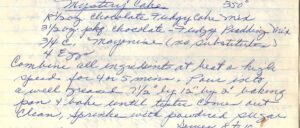 Mystery Cake 350°
chocolate Fudge Cake mix
3½ oz. pkg chocolate Fudge Pudding mix
3/4 C. Mayonnaise (no substitutes)
Combine all ingredients at beat a high
speed for 4 or 5 mins. Pour into
a well greased 7½" by 12" by 2" baking
pan & bake until tester comes out
clean, Sprinkle with powdered sugar
Serves 8 to 10